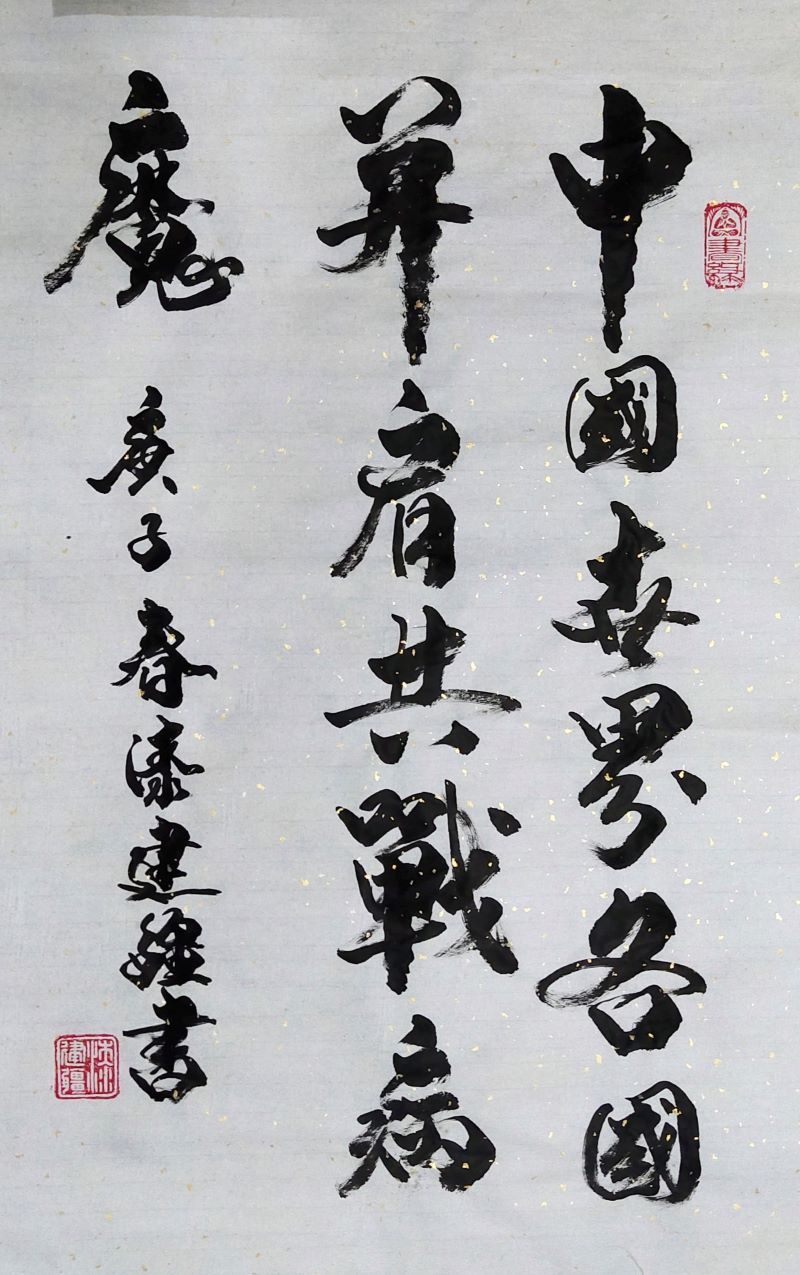 中國世界各國
并肩共戰病
魔
庚子春漆建疆書